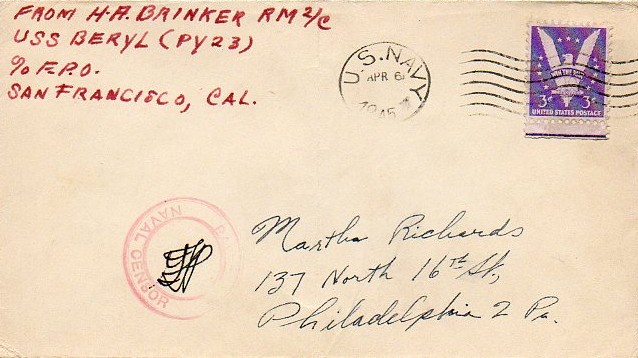 FROM H.A. BRINKER RM 2/C
USS BERYL (PY23)
℅ F.P.O.
SAN FRANCISCO, CAL.
U.S. NAVY
APR 6
1945
WIN THE WAR
3¢ 3¢
UNITED STATES POSTAGE
NAVAL CENSOR
Martha Richards
137 North 16th St,
Philadelphia 2 Pa.